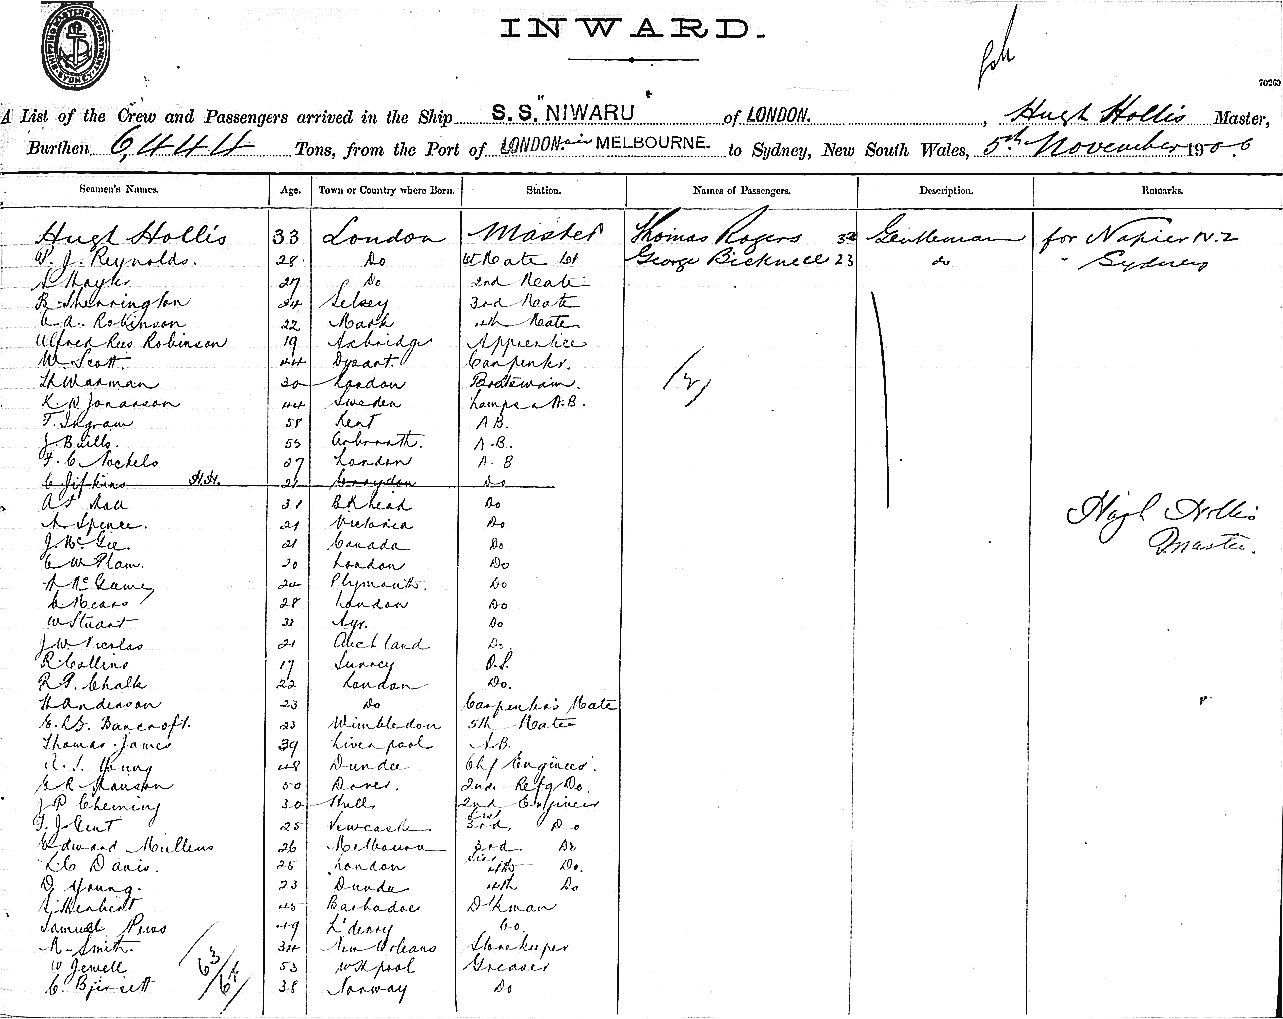 SHIPPING MASTERS DEPARTMENT SYDNEY
INWARD.
70263
A List of the Crew and Passengers arrived in the Ship S.S. "NIWARU" of LONDON. , Hugh Hollis Master,
Burthen 6,444 Tons, from the Port of LONDON via MELBOURNE. to Sydney, New South Wales, 5th November 1906
Seamen's Names. Age. Town or Country where Born. Station. Names of Passengers. Description. Remarks.
Hugh Hollis 33 London Master Thomas Rogers 32 Gentleman for Napier N.Z
W. J. Reynolds. 28 Do 1st Mate George Bicknell 23 do " Sydney
27 Do 2nd Mate
R Sherrington 24 Selsey 3rd Mate
A. Robinson 22 Mark 4th Mate
Alfred Rees Robinson 19 Axbridge Apprentice
W. Scott. 44 Dysart. Carpenter.
H Warman 30 London Boatswain.
K W Jonasson 44 Sweden Lamps & A.B.
T. Ingram 58 Kent A B.
J Baills. 53 Arbroath. A.B.
F. C Nockels 27 London A.B
C Jifkins H.H. 21 Croydon Do
31 BKhead Do
A. Spence. 21 Victoria Do
Hugh Hollis
Master.
J. McGee. 21 Canada Do
C W Plam. 20 London Do
24 Plymouth. Do
Mears 28 London Do
W Stuart Ayr. Do
J W Nicolas 21 Auckland Do
R Collins 17 Surrey O.S.
R. G. Chalk 22 London Do.
H Anderson 23 Do Carpenter's Mate
Bancroft. 23 Wimbledon 5th Mate
Thomas James 39 Liverpool A.B.
Young 48 Dundee Chf Engineer.
Manson 50 Dover. 2nd. Refg Do.
J P Cheming 30 Hull 2nd Engineer
Gent 25 Newcastle 3rd Do
Edward Mullens 26 Melbourne 3rd Do
Davis. 25 London 4th Do.
D Young. 23 Dundee 4th Do
Herbert 45 Barbados Dkman
Samuel 49 L'derry Do.
Smith. 34 New Orleans Storekeeper
W Jewell 53 WHpool Greaser
C. 38 Norway Do
63
64